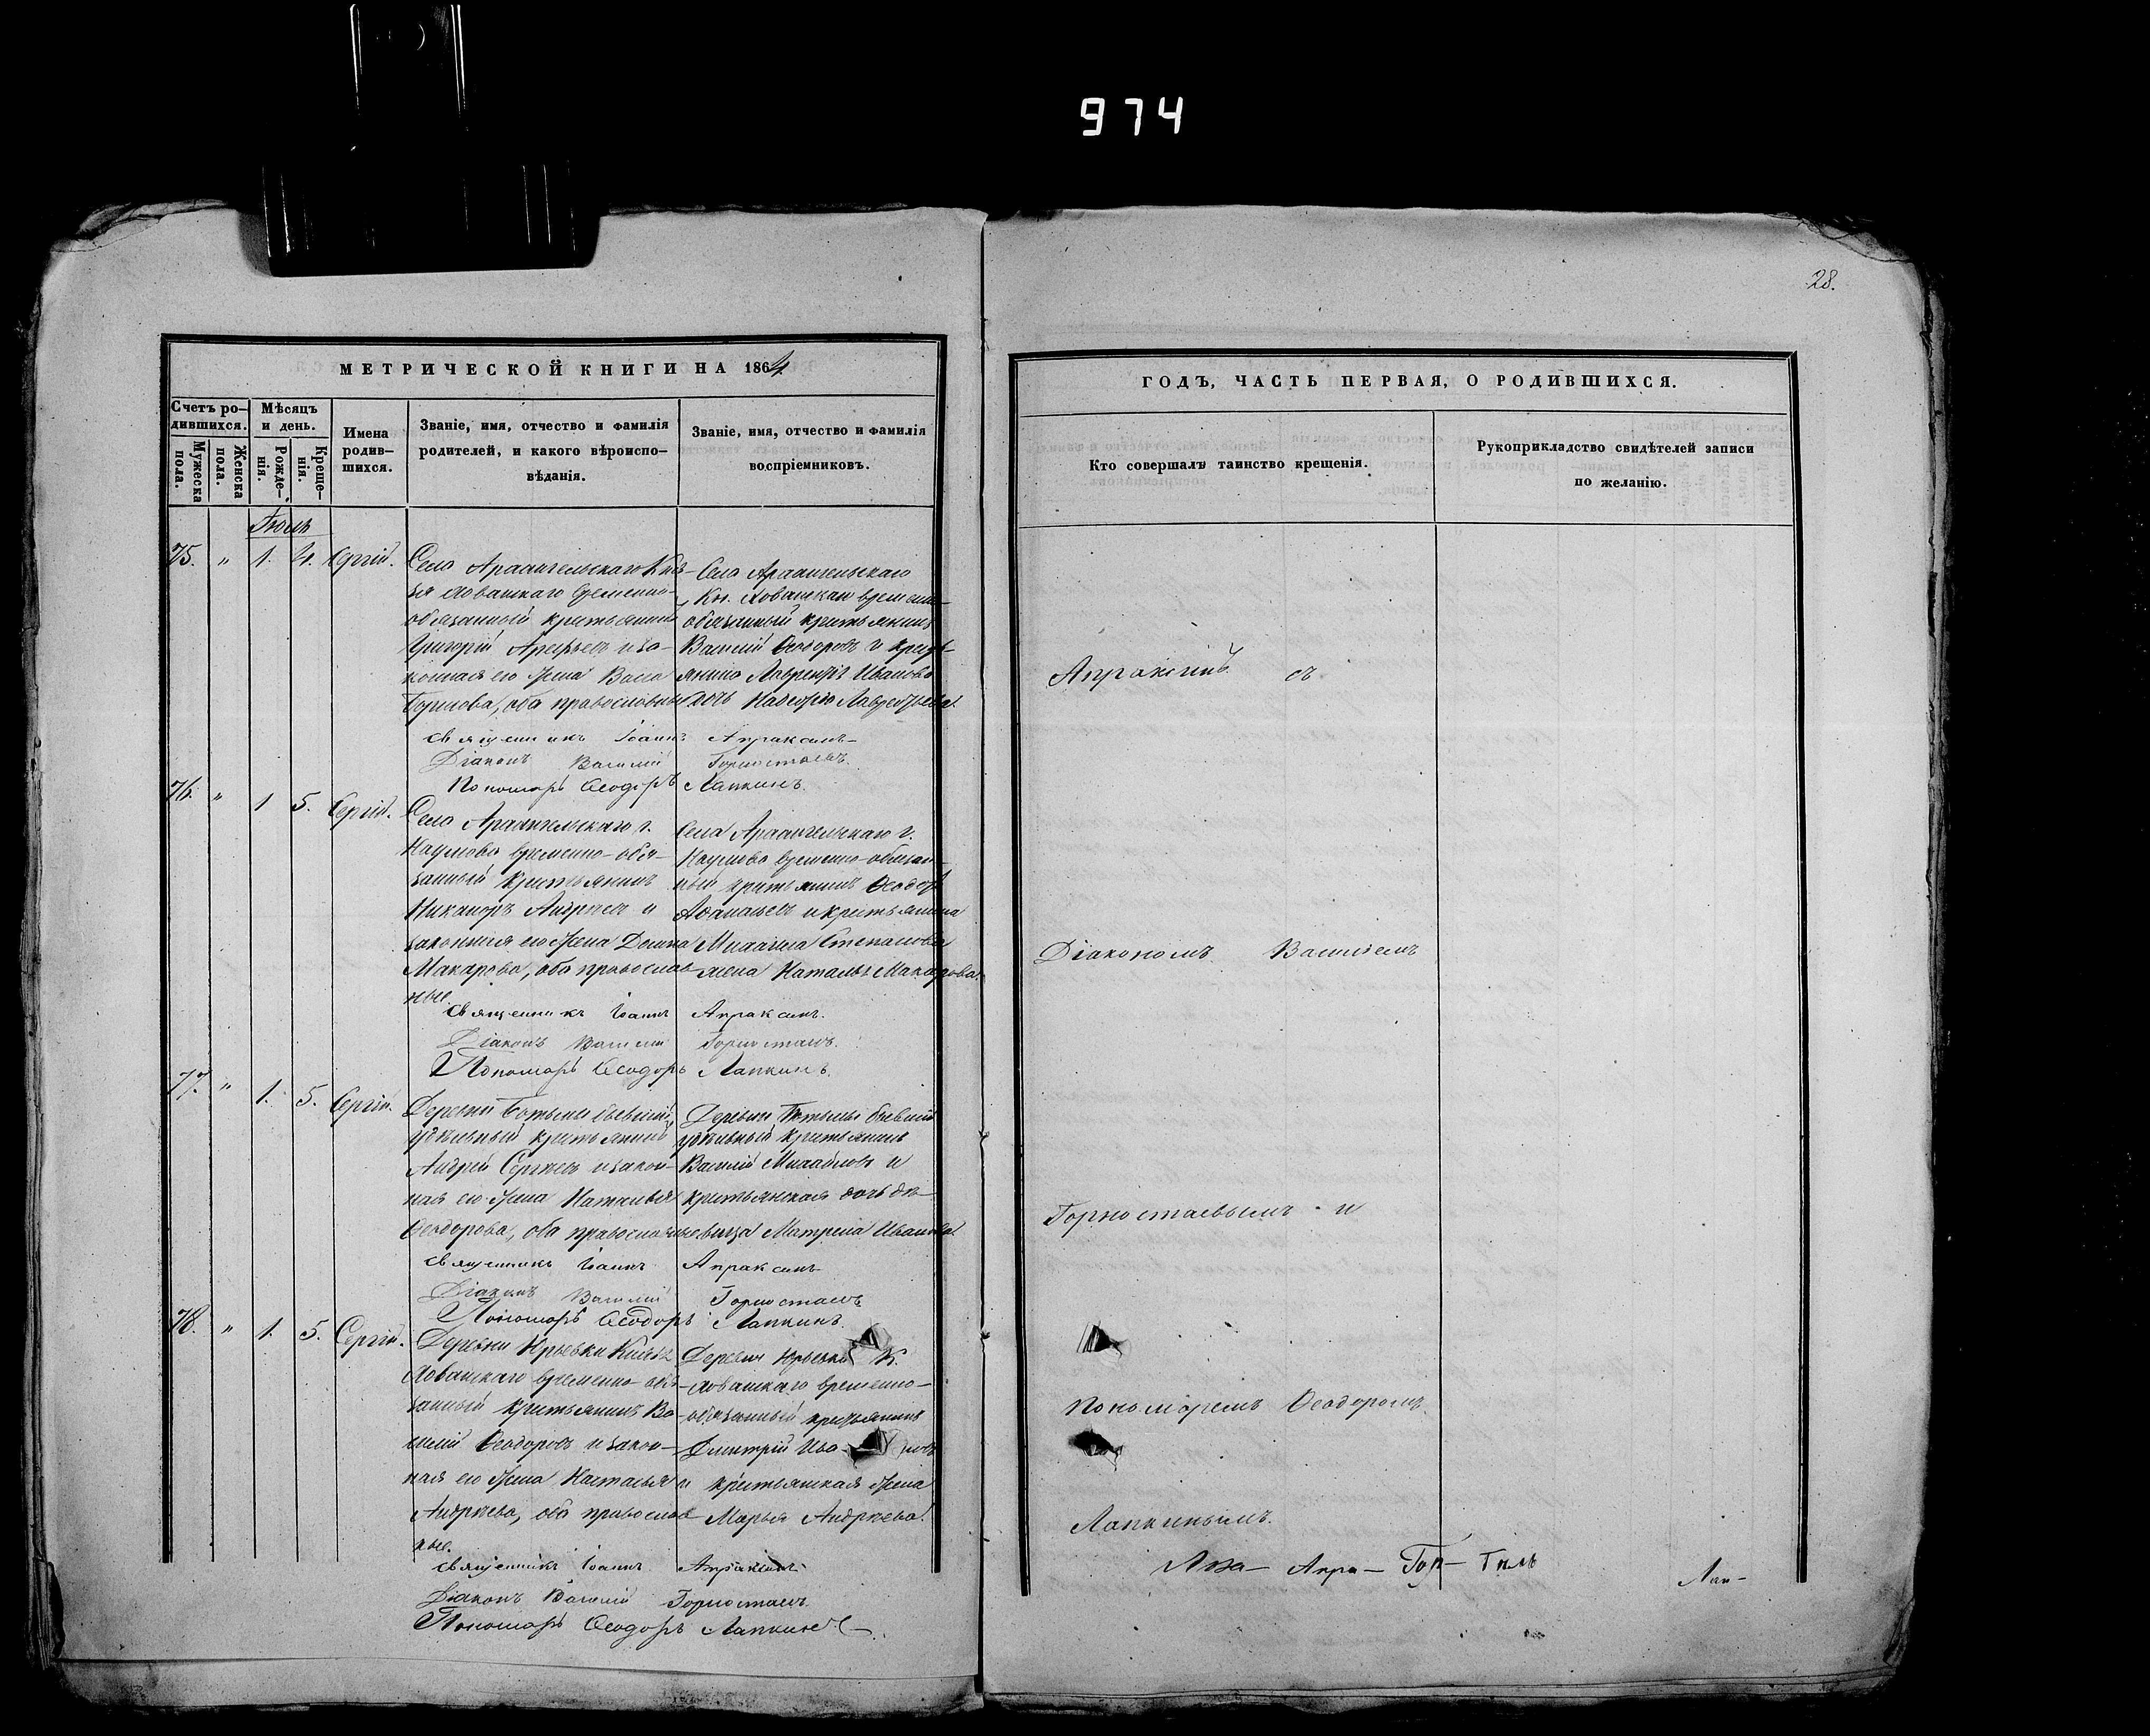 974
28.
МЕТРИЧЕСКОЙ КНИГИ НА 1864
ГОДЪ, ЧАСТЬ ПЕРВАЯ, О РОДИВШИХСЯ.
Счетъ ро-
дившихся.
Мужеска
пола.
Женска
пола.
Мѣсяцъ
и день.
Рожде-
нія.
Креще-
нія.
Имена
родив-
шихся.
Званіе, имя, отчество и фамилія
родителей, и какого вѣроиспо-
вѣданія.
Званіе, имя, отчество и фамилія
воспріемниковъ.
Кто совершалъ таинство крещенія.
Рукоприкладство свидѣтелей записи
по желанію.
Іюль
75. " 1. 4. Сергій.
Села Архангельскаго Кня-
зя Хованскаго временно-
обязанный крестьянинъ
Григорій Арефьевъ и за-
конная его жена Васса
Борисова, оба православные
Села Архангельскаго
Кн. Хованскаго временно-
обязанный крестьянинъ
Василій Ѳеодоровъ и кресть-
янина Лаврентія Иванова
дочь Надежда Лаврентьева.
Священникъ Іоаннъ Апраксинъ
Діаконъ Василій Горностаевъ.
Пономарь Ѳеодоръ Лапкинъ.
76. " 1 5. Сергій.
Села Архангельскаго г.
Наумова временно-обя-
занный крестьянинъ
Никаноръ Андреевъ и
законная его жена Домна
Макарова, оба православ-
ные.
Села Архангельскаго г.
Наумова временно-обязан-
ный крестьянинъ Ѳеодоръ
Аѳанасьевъ и крестьянина
Михаила Степанова
жена Наталья Макарова.
Священникъ Іоаннъ Апраксинъ.
Діаконъ Василій Горностаевъ.
Пономарь Ѳеодоръ Лапкинъ.
77. " 1. 5. Сергій.
Деревни бывшій
удѣльный крестьянинъ
Андрей Сергѣевъ и закон-
ная его жена Наталья
Ѳеодорова, оба православные
Деревни бывшій
удѣльный крестьянинъ
Василій Михайловъ и
крестьянская дочь дѣ-
вица Матрена Иванова.
Священникъ Іоаннъ Апраксинъ
Діаконъ Василій Горностаевъ
Пономарь Ѳеодоръ Лапкинъ.
78. " 1. 5. Сергій.
Деревни Юрьевки Князя
Хованскаго временно-обя-
занный крестьянинъ Ва-
силій Ѳеодоровъ и закон-
ная его жена Наталья
Андреева, оба православ-
ные.
Деревни Юрьевки К.
Хованскаго временно-
обязанный крестьянинъ
Дмитрій Ива- новъ
и крестьянская жена
Марья Андреева.
Священникъ Іоаннъ Апраксинъ
Діаконъ Василій Горностаевъ.
Пономарь Ѳеодоръ Лапкинъ
Апраксинъ съ
Діакономъ Василіемъ
Горностаевымъ и
Пономаремъ Ѳеодоромъ
Лапкинымъ.
Апра- Гор-
Лап-